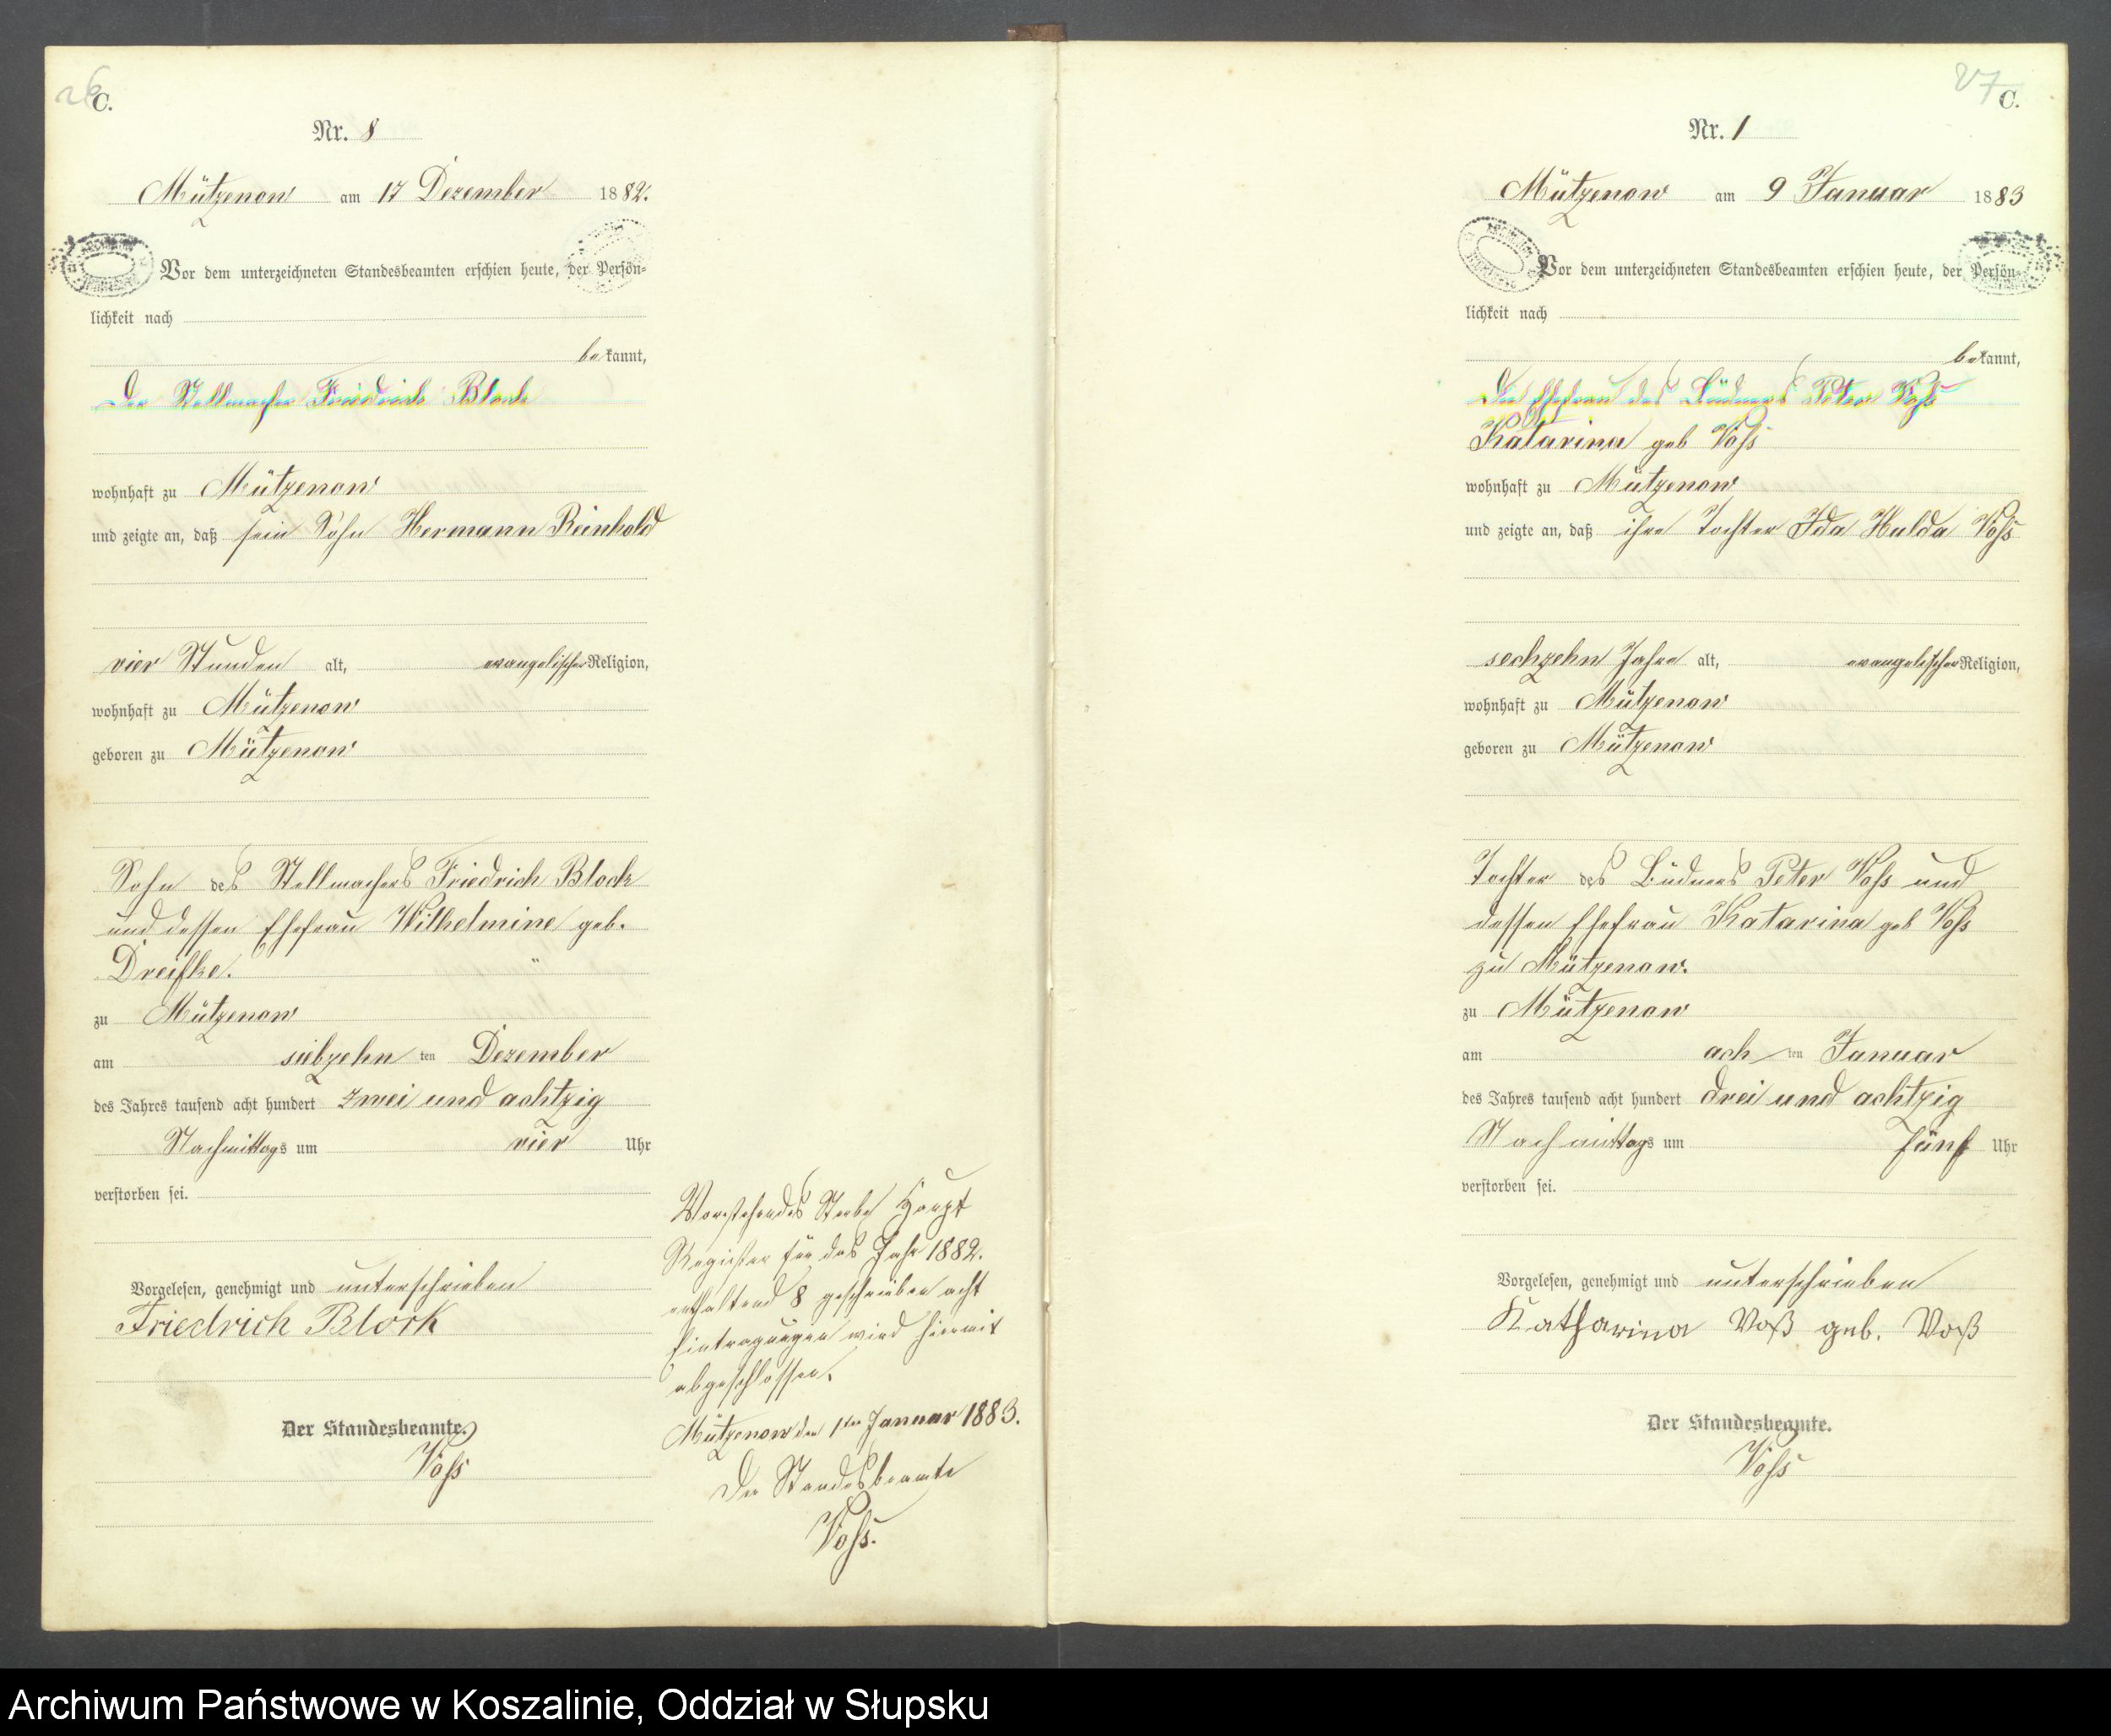 26
C.
Nr. 8
Mützenow am 17 Dezember 1882.
Vor dem unterzeichneten Standesbeamten erschien heute, der Persön-
lichkeit nach
bekannt,
Der Stellmacher Friedrich Block
wohnhaft zu Mützenow
und zeigte an, daß sein Sohn Hermann Reinhold
vier Stunden alt, evangelischer Religion,
wohnhaft zu Mützenow
geboren zu Mützenow
Sohn des Stellmachers Friedrich Block
und dessen Ehefrau Wilhelmine geb.
Dreifke.
zu Mützenow
am siebzehn ten Dezember
des Jahres tausend acht hundert zwei und achtzig
Nachmittags um vier Uhr
verstorben sei.
Vorgelesen, genehmigt und unterschrieben
Friedrich Block
Der Standesbeamte.
Voß
Vorstehendes Sterbe Haupt
Register für das Jahr 1882.
enthaltend 8 geschrieben acht
Eintragungen wird hiermit
abgeschlossen.
Mützenow den 1ten Januar 1883.
Der Standesbeamte
Voß.
27
C.
Nr. 1
Mützenow am 9 Januar 1883
Vor dem unterzeichneten Standesbeamten erschien heute, der Persön-
lichkeit nach
bekannt,
Die Ehefrau des Büdners Peter Voß
Katarina geb Voß
wohnhaft zu Mützenow
und zeigte an, daß ihre Tochter Ida Hulda Voß
sechzehn Jahre alt, evangelischer Religion,
wohnhaft zu Mützenow
geboren zu Mützenow
Tochter des Büdners Peter Voß und
dessen Ehefrau Katarina geb Voß
zu Mützenow.
zu Mützenow
am ach ten Januar
des Jahres tausend acht hundert drei und achtzig
Nachmittags um fünf Uhr
verstorben sei.
Vorgelesen, genehmigt und unterschrieben
Katharina Voß geb. Voß
Der Standesbeamte.
Voß
Archiwum Państwowe w Koszalinie, Oddział w Słupsku